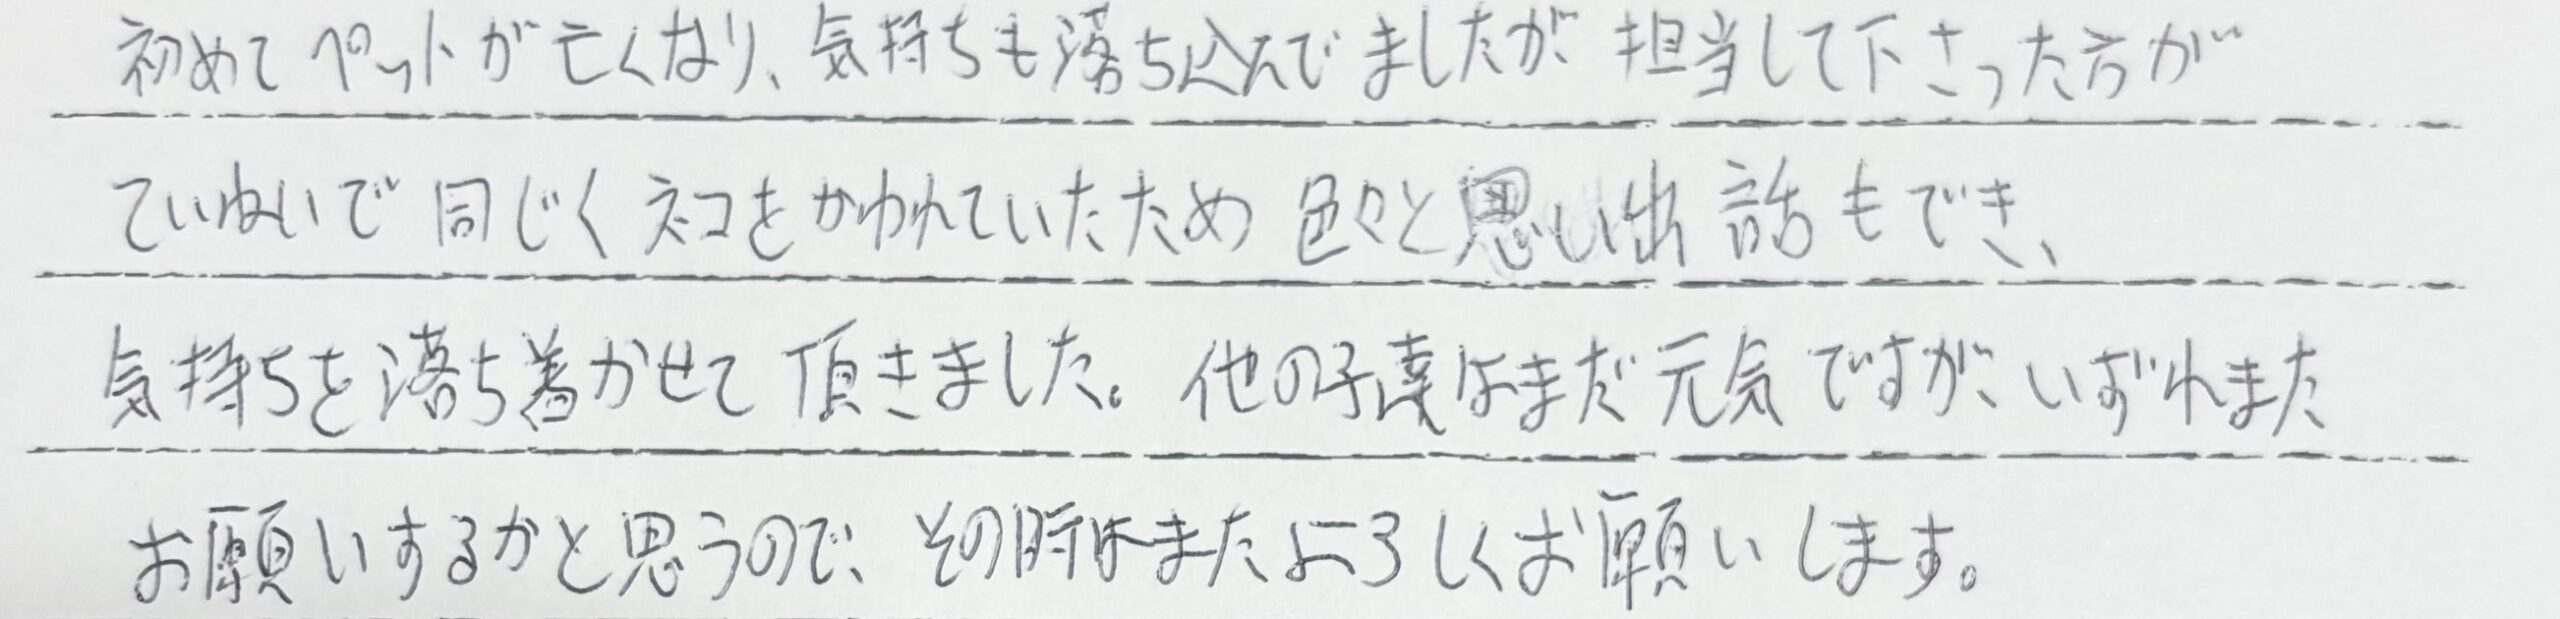 初めてペットが亡くなり、気持ちも落ち込んでましたが担当して下さった方が
ていねいで同じくネコをかわれていたため色々と思い出話もでき、
気持ちを落ち着かせて頂きました。他の子達はまだ元気ですが、いずれまた
お願いするかと思うので、その時はまたよろしくお願いします。